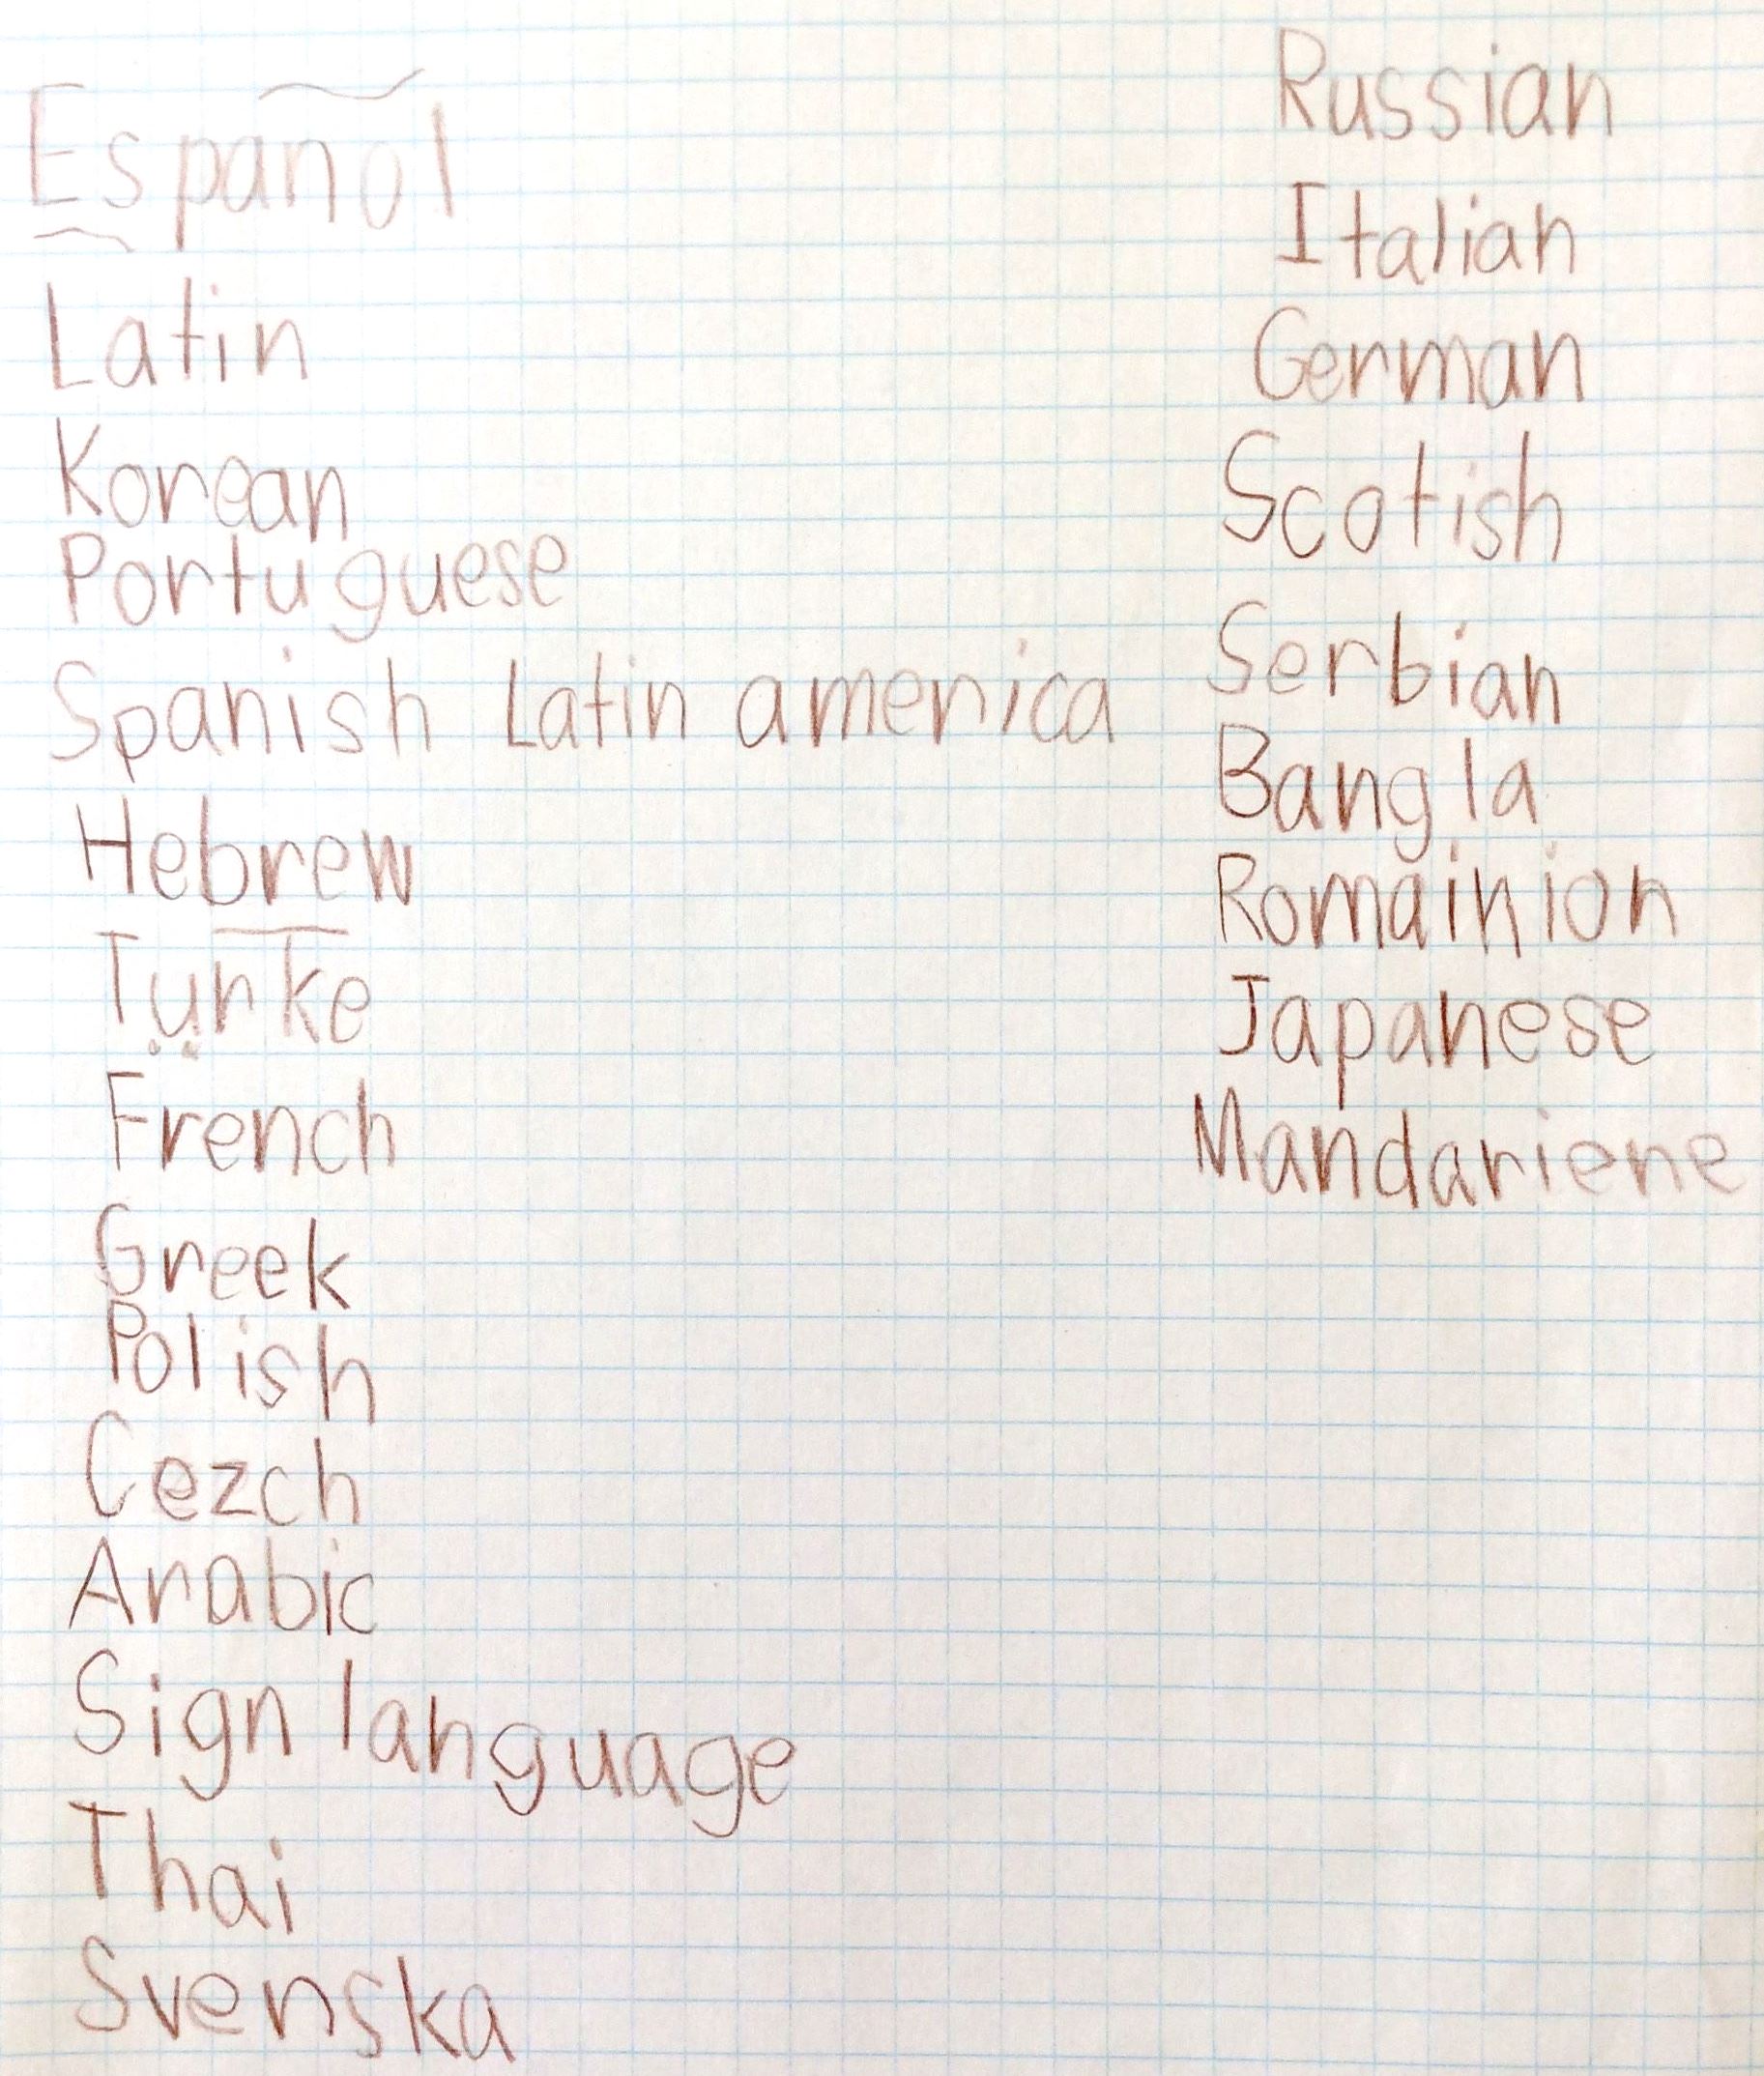 Español
Latin
Korean
Portuguese
Spanish Latin america
Hebrew
Turke
French
Greek
Polish
Cezch
Arabic
Sign language
Thai
Svenska
Russian
Italian
German
Scotish
Serbian
Bangla
Romainion
Japanese
Mandariene